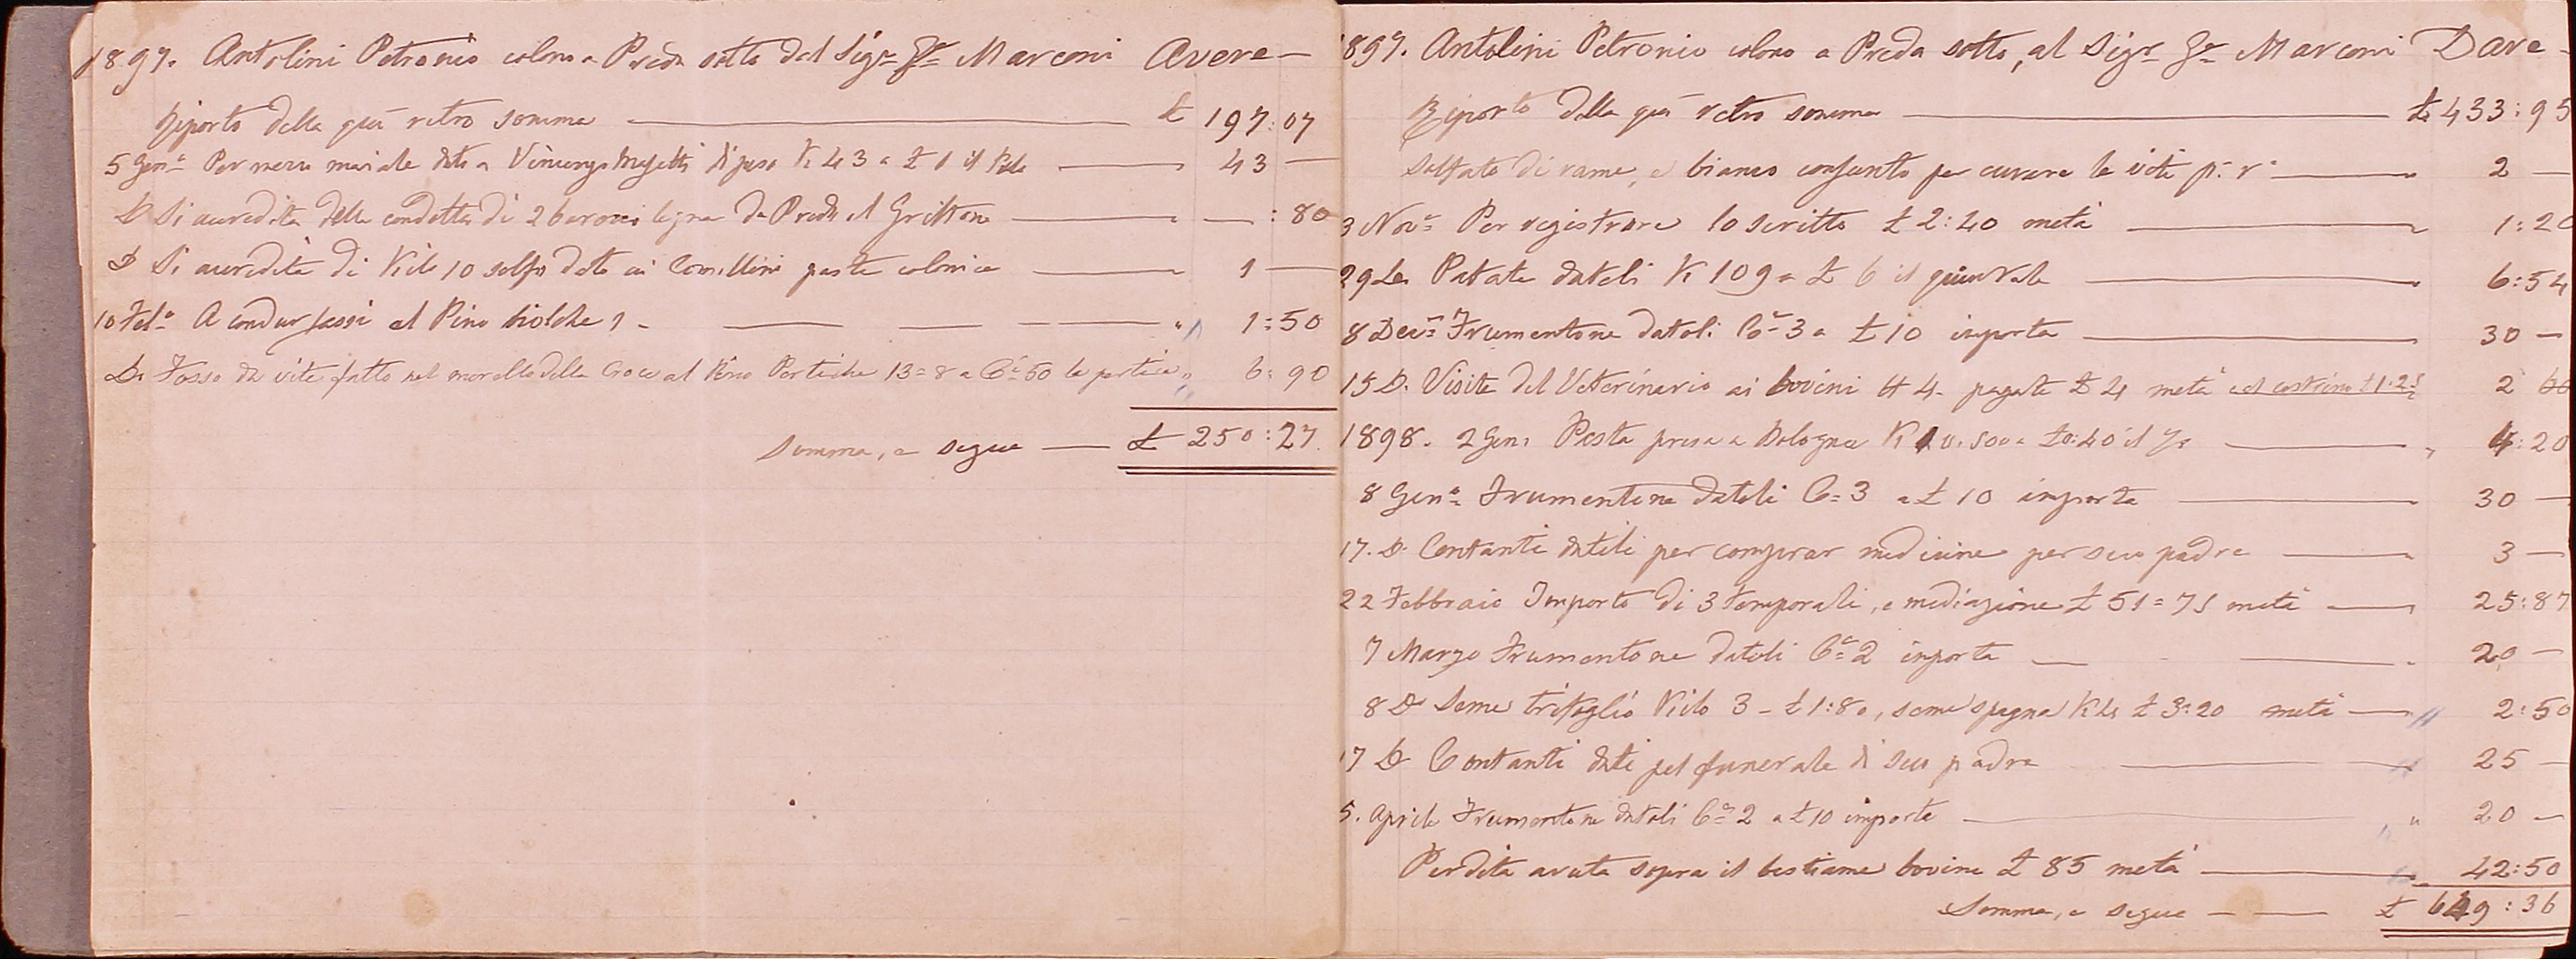 1897. Antolini Petronio colono a Preda sotto del Sigr Ge Marconi Avere —
Riporto della quì retro somma — £ 197:07
5 Genn. Per mezzo maiale dato a Vincenzo Masetti di peso K 43 a £ 1 il Kilo — 43 —
D. Si accredita della condotta di 2 barocci legna da Preda al Griffone — — : 80
D. Si accredita di Kilo 10 solfo dato ai Comellini parte colonica — 1 —
10 Feb. A condur sassi al Pino biolche 1 — " 1:50
D. Fosso da vite fatto nel morello della Croce al Pino Pertiche 13=8 a C. 50 la pertica " 6:90
Somma, e segue — £ 250:27.
1897. Antolini Petronio colono a Preda sotto, al Sigr Ge Marconi Dare —
Riporto della quì retro somma — £ 433:95
Solfato di rame, e bianco consunto per curare le viti p. r. — 2 —
3 Nov. Per registrare lo scritto £ 2:40 metà — 1:20
29 D. Patate datoli K 109 a £ 6 il quintale — 6:54
8 Dec. Frumentone datoli C. 3 a £ 10 importa — 30 —
15 D. Visite del Veterinario ai bovini N 4. pagate £ 4 metà — 2
1898. 2 Gen. Pasta presa a Bologna K 10.500 a £0:40 il K — " 4:20
8 Gen. Frumentone datoli C. 3 a £ 10 importa — 30 —
17. D. Contanti datili per comprar medicine per suo padre — 3 —
22 Febbraio Importo di 3 temporali, e mediazione £ 51=75 metà — 25:87
7 Marzo Frumentone datoli C. 2 importa — 20 —
8 D. Seme trifoglio Kilo 3 – £ 1:80, seme spagna K 4 £ 3:20 metà — " 2:50
17 D. Contanti dati pel funerale di suo padre — 25 —
5. Aprile Frumentone datoli C. 2 a £ 10 importa — " 20 —
Perdita avuta sopra il bestiame bovino £ 85 metà — 42:50
Somma, e segue — £ 649:36